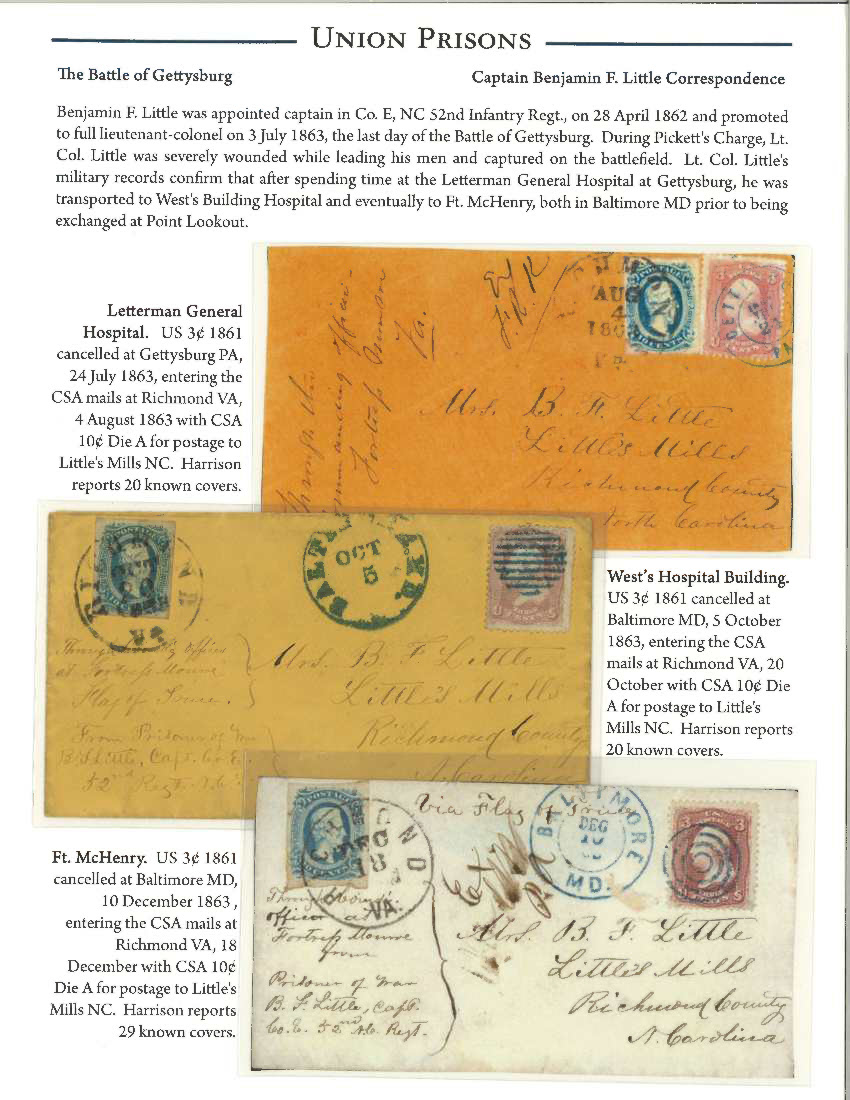 UNION PRISONS
The Battle of Gettysburg
Captain Benjamin F. Little Correspondence
Benjamin F. Little was appointed captain in Co. E, NC 52nd Infantry Regt., on 28 April 1862 and promoted
to full lieutenant-colonel on 3 July 1863, the last day of the Battle of Gettysburg. During Pickett's Charge, Lt.
Col. Little was severely wounded while leading his men and captured on the battlefield. Lt. Col. Little's
military records confirm that after spending time at the Letterman General Hospital at Gettysburg, he was
transported to West's Building Hospital and eventually to Ft. McHenry, both in Baltimore MD prior to being
exchanged at Point Lookout.
Letterman General
Hospital. US 3¢ 1861
cancelled at Gettysburg PA,
24 July 1863, entering the
CSA mails at Richmond VA,
4 August 1863 with CSA
10¢ Die A for postage to
Little's Mills NC. Harrison
reports 20 known covers.
Through the
Commanding officer
Fortress Monroe
Va.
AUG
4
186
Mrs. B. F. Little
Little's Mills
Richmond County
North Carolina
RICHMOND
VA
OCT
5
Through Com'g officer
at Fortress Monroe
Flag of Truce.
From Prisoner of War
B. F. Little, Capt. Co. E.
52nd Regt. N.C.
Mrs. B. F. Little
Little's Mills
Richmond County
N. Carolina
West's Hospital Building.
US 3¢ 1861 cancelled at
Baltimore MD, 5 October
1863, entering the CSA
mails at Richmond VA, 20
October with CSA 10¢ Die
A for postage to Little's
Mills NC. Harrison reports
20 known covers.
Ft. McHenry. US 3¢ 1861
cancelled at Baltimore MD,
10 December 1863 ,
entering the CSA mails at
Richmond VA, 18
December with CSA 10¢
Die A for postage to Little's
Mills NC. Harrison reports
29 known covers.
Via Flag of Truce
DEC
18
VA.
BALTIMORE
DEC
10
MD.
officer at
Fortress Monroe
from
Prisoner of War
B. F. Little, Capt.
Co. E. 52nd N.C. Regt.
Mrs. B. F. Little
Little's Mills
Richmond County
N. Carolina